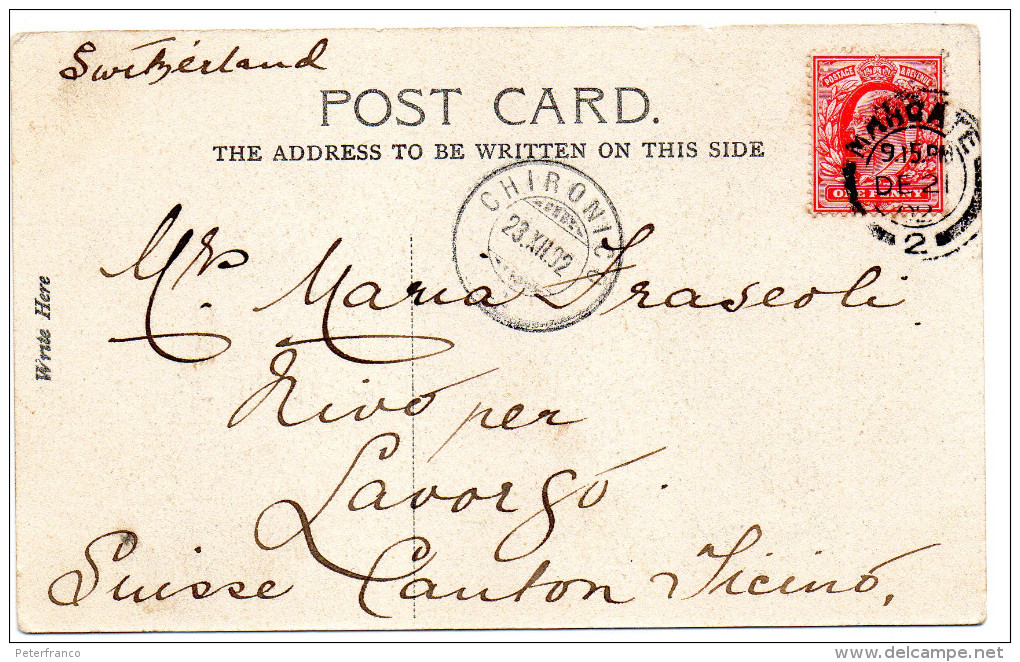 Switzerland
POST CARD.
THE ADDRESS TO BE WRITTEN ON THIS SIDE
POSTAGE & REVENUE
ONE PENNY
MARGATE
9.15 PM
DE 21
02
2
CHIRONICO
23.XII.02
Mrs Maria Frascoli
Nivó per
Lavorgó.
Suisse Canton Ticinó,
Write Here
Peterfranco
www.delcampe.net